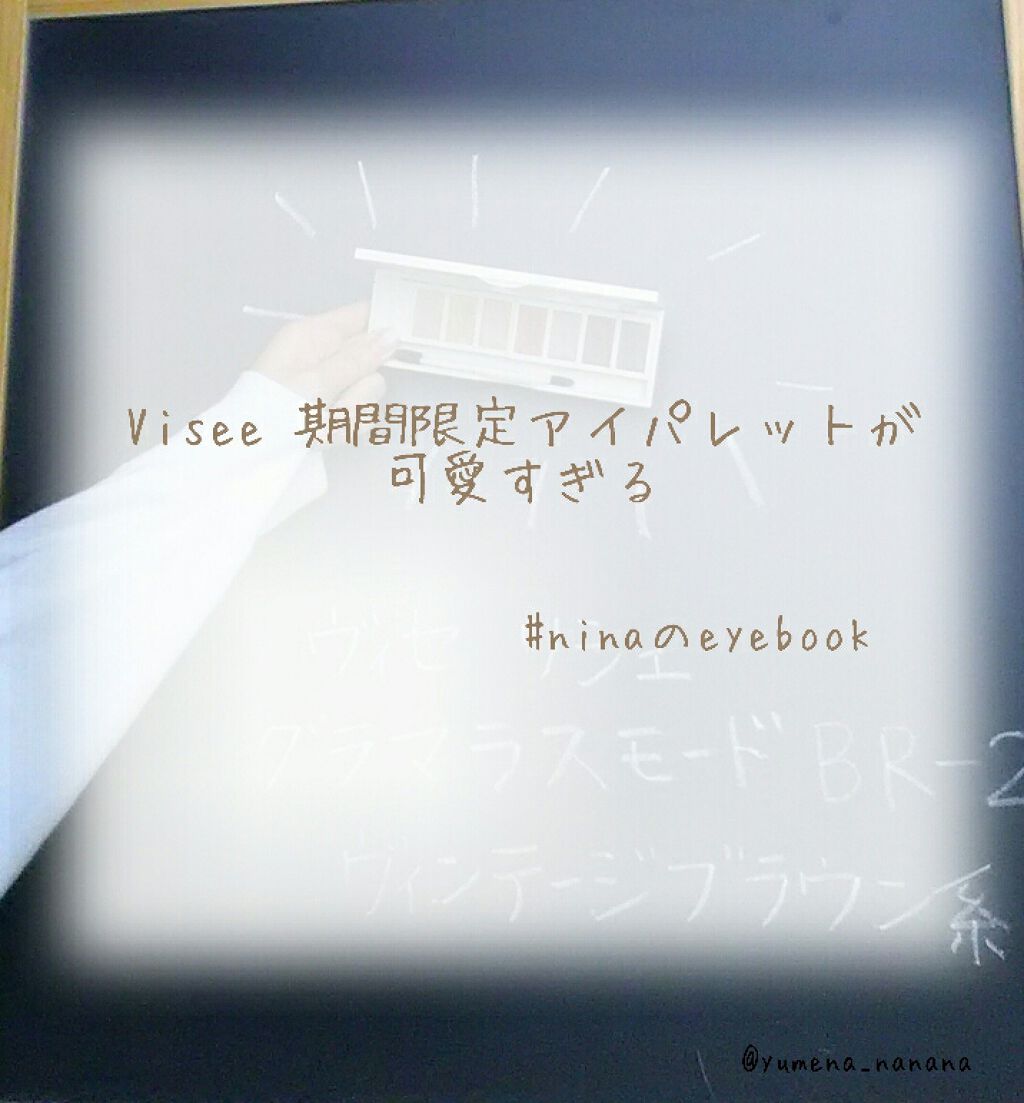 Visee 期間限定アイパレットが
可愛すぎる
#ninaのeyebook
ヴィセ リシェ
グラマラスモード BR-2
ヴィンテージブラウン系
@yumena_nanana